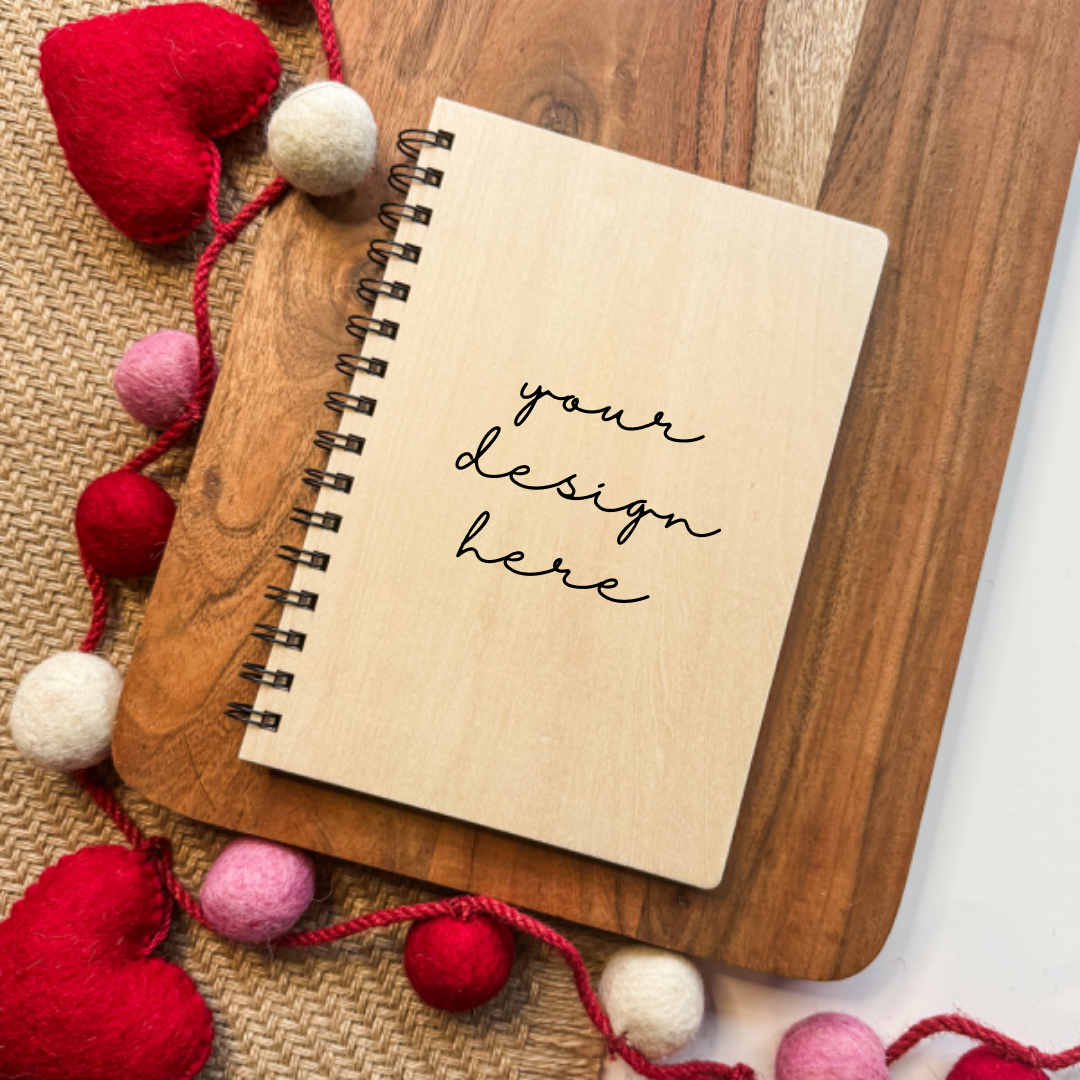 your
design
here